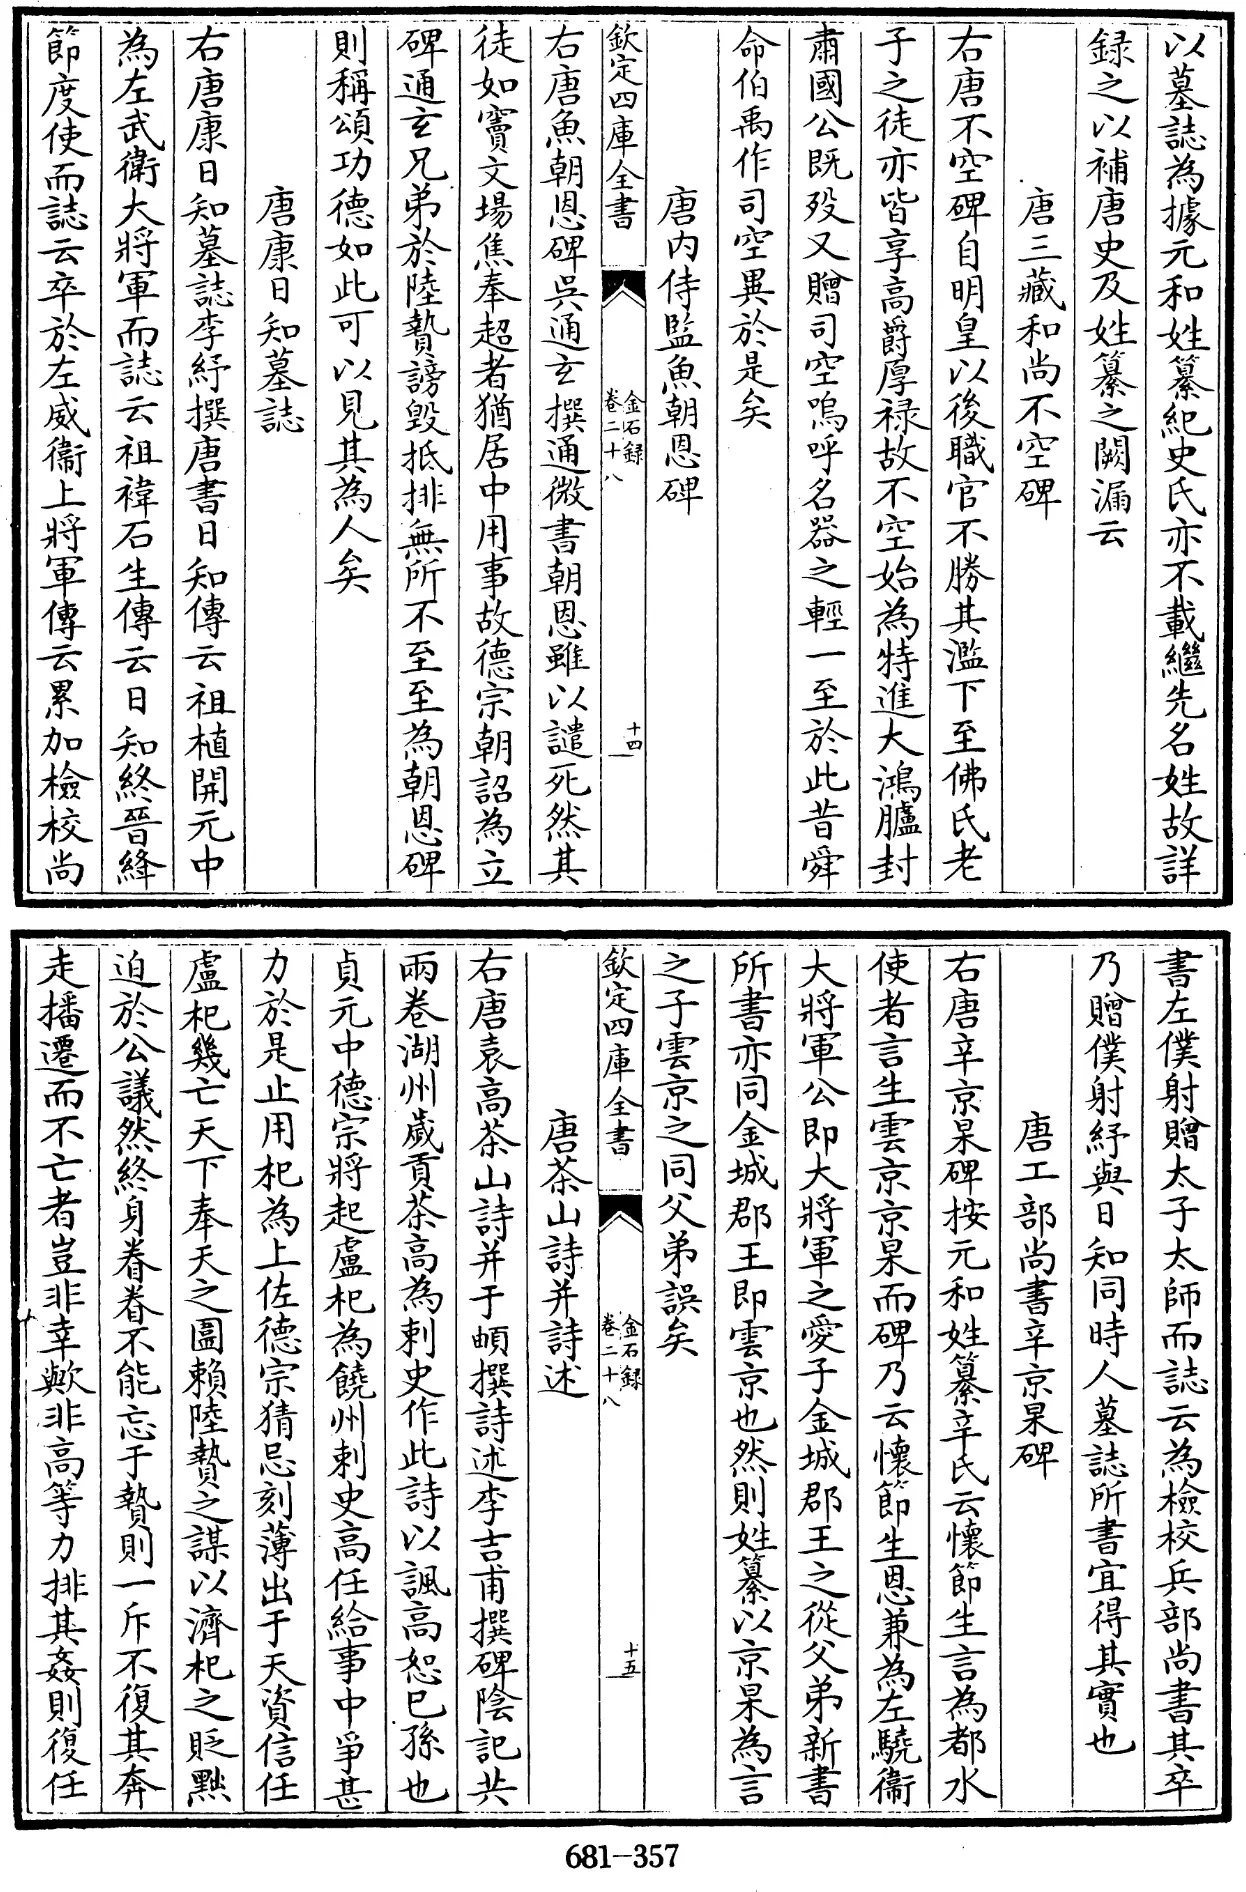 以墓誌為據元和姓纂紀史氏亦不載繼先名姓故詳
録之以補唐史及姓纂之闕漏云
唐三藏和尚不空碑
右唐不空碑自明皇以後職官不勝其濫下至佛氏老
子之徒亦皆享高爵厚禄故不空始為特進大鴻臚封
肅國公既殁又贈司空嗚呼名器之輕一至於此昔舜
命伯禹作司空異於是矣
唐内侍監魚朝恩碑
欽定四庫全書
金石録
卷二十八
十四
右唐魚朝恩碑吳通玄撰通微書朝恩雖以譴死然其
徒如竇文場焦奉超者猶居中用事故德宗朝詔為立
碑通玄兄弟於陸贄謗毁抵排無所不至至為朝恩碑
則稱頌功德如此可以見其為人矣
唐康日知墓誌
右唐康日知墓誌李紓撰唐書日知傳云祖植開元中
為左武衛大將軍而誌云祖褘石生傳云日知終晉絳
節度使而誌云卒於左威衞上將軍傳云累加檢校尚
書左僕射贈太子太師而誌云為檢校兵部尚書其卒
乃贈僕射紓與日知同時人墓誌所書宜得其實也
唐工部尚書辛京杲碑
右唐辛京杲碑按元和姓纂辛氏云懷節生言為都水
使者言生雲京京杲而碑乃云懷節生恩兼為左驍衞
大將軍公即大將軍之愛子金城郡王之從父弟新書
所書亦同金城郡王即雲京也然則姓纂以京杲為言
之子雲京之同父弟誤矣
欽定四庫全書
金石録
卷二十八
十五
唐茶山詩并詩述
右唐袁高茶山詩并于頔撰詩述李吉甫撰碑陰記共
兩卷湖州嵗貢茶高為刺史作此詩以諷高恕已孫也
貞元中德宗將起盧杞為饒州刺史高任給事中爭甚
力於是止用杞為上佐德宗猜忌刻薄出于天資信任
盧杞幾亡天下奉天之圍賴陸贄之謀以濟杞之貶黜
迫於公議然終身眷眷不能忘于贄則一斥不復其奔
走播遷而不亡者豈非幸歟非高等力排其姦則復任
681-357